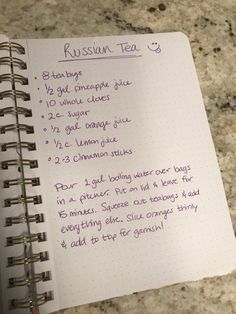 Russian Tea
• 8 teabags
• ½ gal pineapple juice
• 10 whole cloves
• 2 c. sugar
• ½ gal orange juice
• ½ c. lemon juice
• 2-3 cinnamon sticks
Pour 1 gal boiling water over bags
in a pitcher. Put on lid & leave for
15 minutes. Squeeze out teabags & add
everything else. Slice oranges thinly
& add to top for garnish!